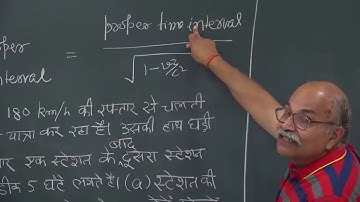 proper time interval
oper =
nterval √1-v²/c²
180 km/h की रफ्तार से चलती
यात्रा कर रहा है। उसकी हाथ घड़ी
बाद
एक स्टेशन के, दूसरा स्टेशन
ठीक 5 घंटे लगते हैं। (a) स्टेशन की